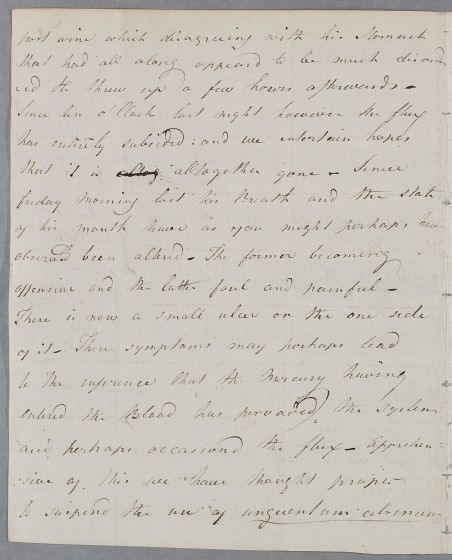 port wine which disagreeing with his Stomach
that had all along appeard to be much disorder
:ed He threw up a few hours afterwards -
Since ten o'Clock last night however the flux
has entirely subsided: and we entertain hopes
that it is altogether gone - Since
friday morning last his Breath and the state
of his mouth have as you might perhaps have
observed been altered - The former becoming
offensive and the latter foul and painful -
There is now a small ulcer on the one side
of it - These symptoms may perhaps lead
to the inference that the Mercury having
entered the Blood has pervaded the system
and perhaps occasiond the flux - Apprehen:
:sive of this we have thought proper
to suspend the use of unguentum